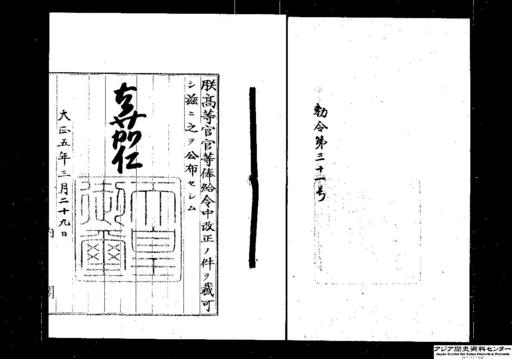 勅令第三十一号
朕高等官官等俸給令中改正ノ件ヲ裁可
シ茲ニ之ヲ公布セシム
嘉仁
天皇御璽
大正五年三月二十九日
内閣
アジア歴史資料センター
Japan Center for Asian Historical Records